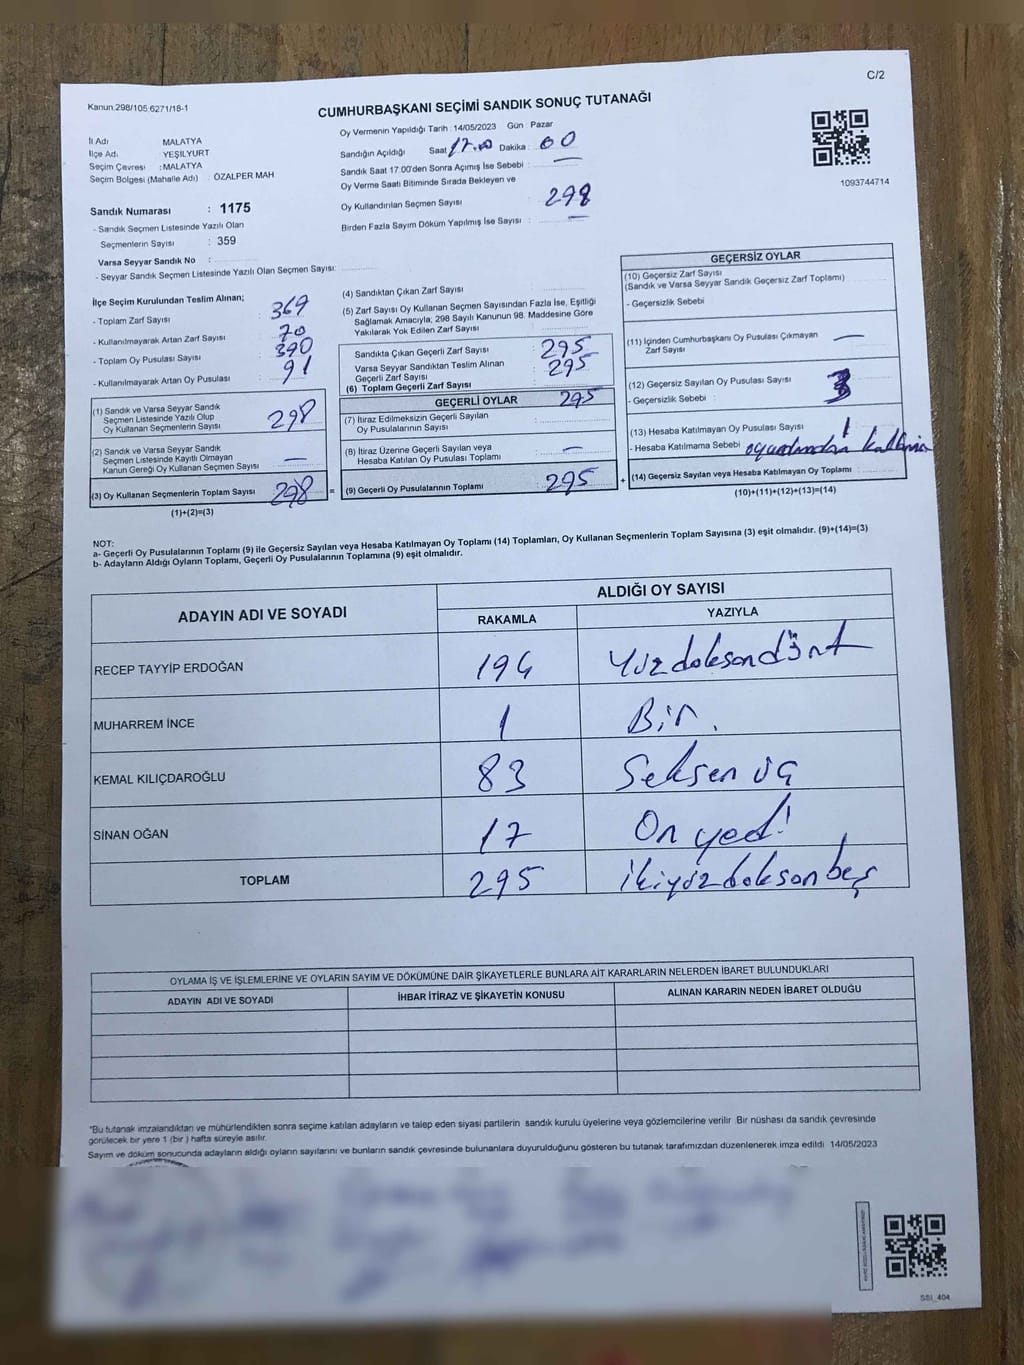 C/2
Kanun.298/105.6271/18-1
CUMHURBAŞKANI SEÇİMİ SANDIK SONUÇ TUTANAĞI
İl Adı MALATYA
İlçe Adı YEŞİLYURT
Seçim Çevresi : MALATYA
Seçim Bölgesi (Mahalle Adı) : ÖZALPER MAH
Sandık Numarası : 1175
- Sandık Seçmen Listesinde Yazılı Olan
Seçmenlerin Sayısı : 359
Varsa Seyyar Sandık No :
- Seyyar Sandık Seçmen Listesinde Yazılı Olan Seçmen Sayısı:
Oy Vermenin Yapıldığı Tarih : 14/05/2023 Gün : Pazar
Sandığın Açıldığı Saat 17.00 Dakika : 00
Sandık Saat 17:00'den Sonra Açımış İse Sebebi : —
Oy Verme Saati Bitiminde Sırada Bekleyen ve
Oy Kullandırılan Seçmen Sayısı 298
Birden Fazla Sayım Döküm Yapılmış İse Sayısı : —
1093744714
İlçe Seçim Kurulundan Teslim Alınan;
- Toplam Zarf Sayısı : 369
- Kullanılmayarak Artan Zarf Sayısı : 70
- Toplam Oy Pusulası Sayısı : 390
- Kullanılmayarak Artan Oy Pusulası : 91
(1) Sandık ve Varsa Seyyar Sandık
Seçmen Listesinde Yazılı Olup
Oy Kullanan Seçmenlerin Sayısı 298
(2) Sandık ve Varsa Seyyar Sandık
Seçmen Listesinde Kayıtlı Olmayan
Kanun Gereği Oy Kullanan Seçmen Sayısı —
(3) Oy Kullanan Seçmenlerin Toplam Sayısı 298 =
(1)+(2)=(3)
(4) Sandıktan Çıkan Zarf Sayısı :
(5) Zarf Sayısı Oy Kullanan Seçmen Sayısından Fazla İse, Eşitliği
Sağlamak Amacıyla; 298 Sayılı Kanunun 98. Maddesine Göre
Yakılarak Yok Edilen Zarf Sayısı
Sandıkta Çıkan Geçerli Zarf Sayısı : 295
Varsa Seyyar Sandıktan Teslim Alınan
Geçerli Zarf Sayısı : 295
(6) Toplam Geçerli Zarf Sayısı
GEÇERLİ OYLAR 295
(7) İtiraz Edilmeksizin Geçerli Sayılan
Oy Pusulalarının Sayısı
(8) İtiraz Üzerine Geçerli Sayılan veya
Hesaba Katılan Oy Pusulası Toplamı : —
(9) Geçerli Oy Pusulalarının Toplamı : 295 +
GEÇERSİZ OYLAR
(10) Geçersiz Zarf Sayısı
(Sandık ve Varsa Seyyar Sandık Geçersiz Zarf Toplamı)
- Geçersizlik Sebebi
(11) İçinden Cumhurbaşkanı Oy Pusulası Çıkmayan
Zarf Sayısı —
(12) Geçersiz Sayılan Oy Pusulası Sayısı : 3
- Geçersizlik Sebebi :
(13) Hesaba Katılmayan Oy Pusulası Sayısı : 1
- Hesaba Katılmama Sebebi
(14) Geçersiz Sayılan veya Hesaba Katılmayan Oy Toplamı :
(10)+(11)+(12)+(13)=(14)
NOT:
a- Geçerli Oy Pusulalarının Toplamı (9) ile Geçersiz Sayılan veya Hesaba Katılmayan Oy Toplamı (14) Toplamları, Oy Kullanan Seçmenlerin Toplam Sayısına (3) eşit olmalıdır. (9)+(14)=(3)
b- Adayların Aldığı Oyların Toplamı, Geçerli Oy Pusulalarının Toplamına (9) eşit olmalıdır.
ADAYIN ADI VE SOYADI ALDIĞI OY SAYISI
RAKAMLA YAZIYLA
RECEP TAYYİP ERDOĞAN 194 Yüzdoksandört
MUHARREM İNCE 1 Bir.
KEMAL KILIÇDAROĞLU 83 Seksen üç
SİNAN OĞAN 17 On yedi
TOPLAM 295 ikiyüzdoksanbeş
OYLAMA İŞ VE İŞLEMLERİNE VE OYLARIN SAYIM VE DÖKÜMÜNE DAİR ŞİKAYETLERLE BUNLARA AİT KARARLARIN NELERDEN İBARET BULUNDUKLARI
ADAYIN ADI VE SOYADI İHBAR İTİRAZ VE ŞİKAYETİN KONUSU ALINAN KARARIN NEDEN İBARET OLDUĞU
"Bu tutanak imzalandıktan ve mühürlendikten sonra seçime katılan adayların ve talep eden siyasi partilerin sandık kurulu üyelerine veya gözlemcilerine verilir. Bir nüshası da sandık çevresinde
görülecek bir yere 1 (bir) hafta süreyle asılır.
Sayım ve döküm sonucunda adayların aldığı oyların sayılarını ve bunların sandık çevresinde bulunanlara duyurulduğunu gösteren bu tutanak tarafımızdan düzenlenerek imza edildi. 14/05/2023
SSI_404